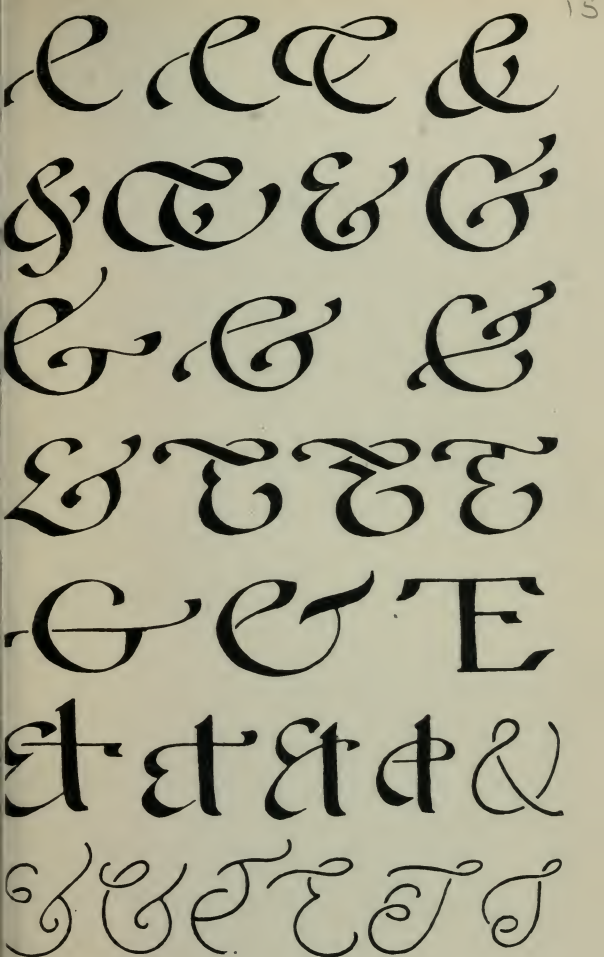 15
& & & &
& & & &
& & &
& & & &
& & &
& & & & &
& & & & & &